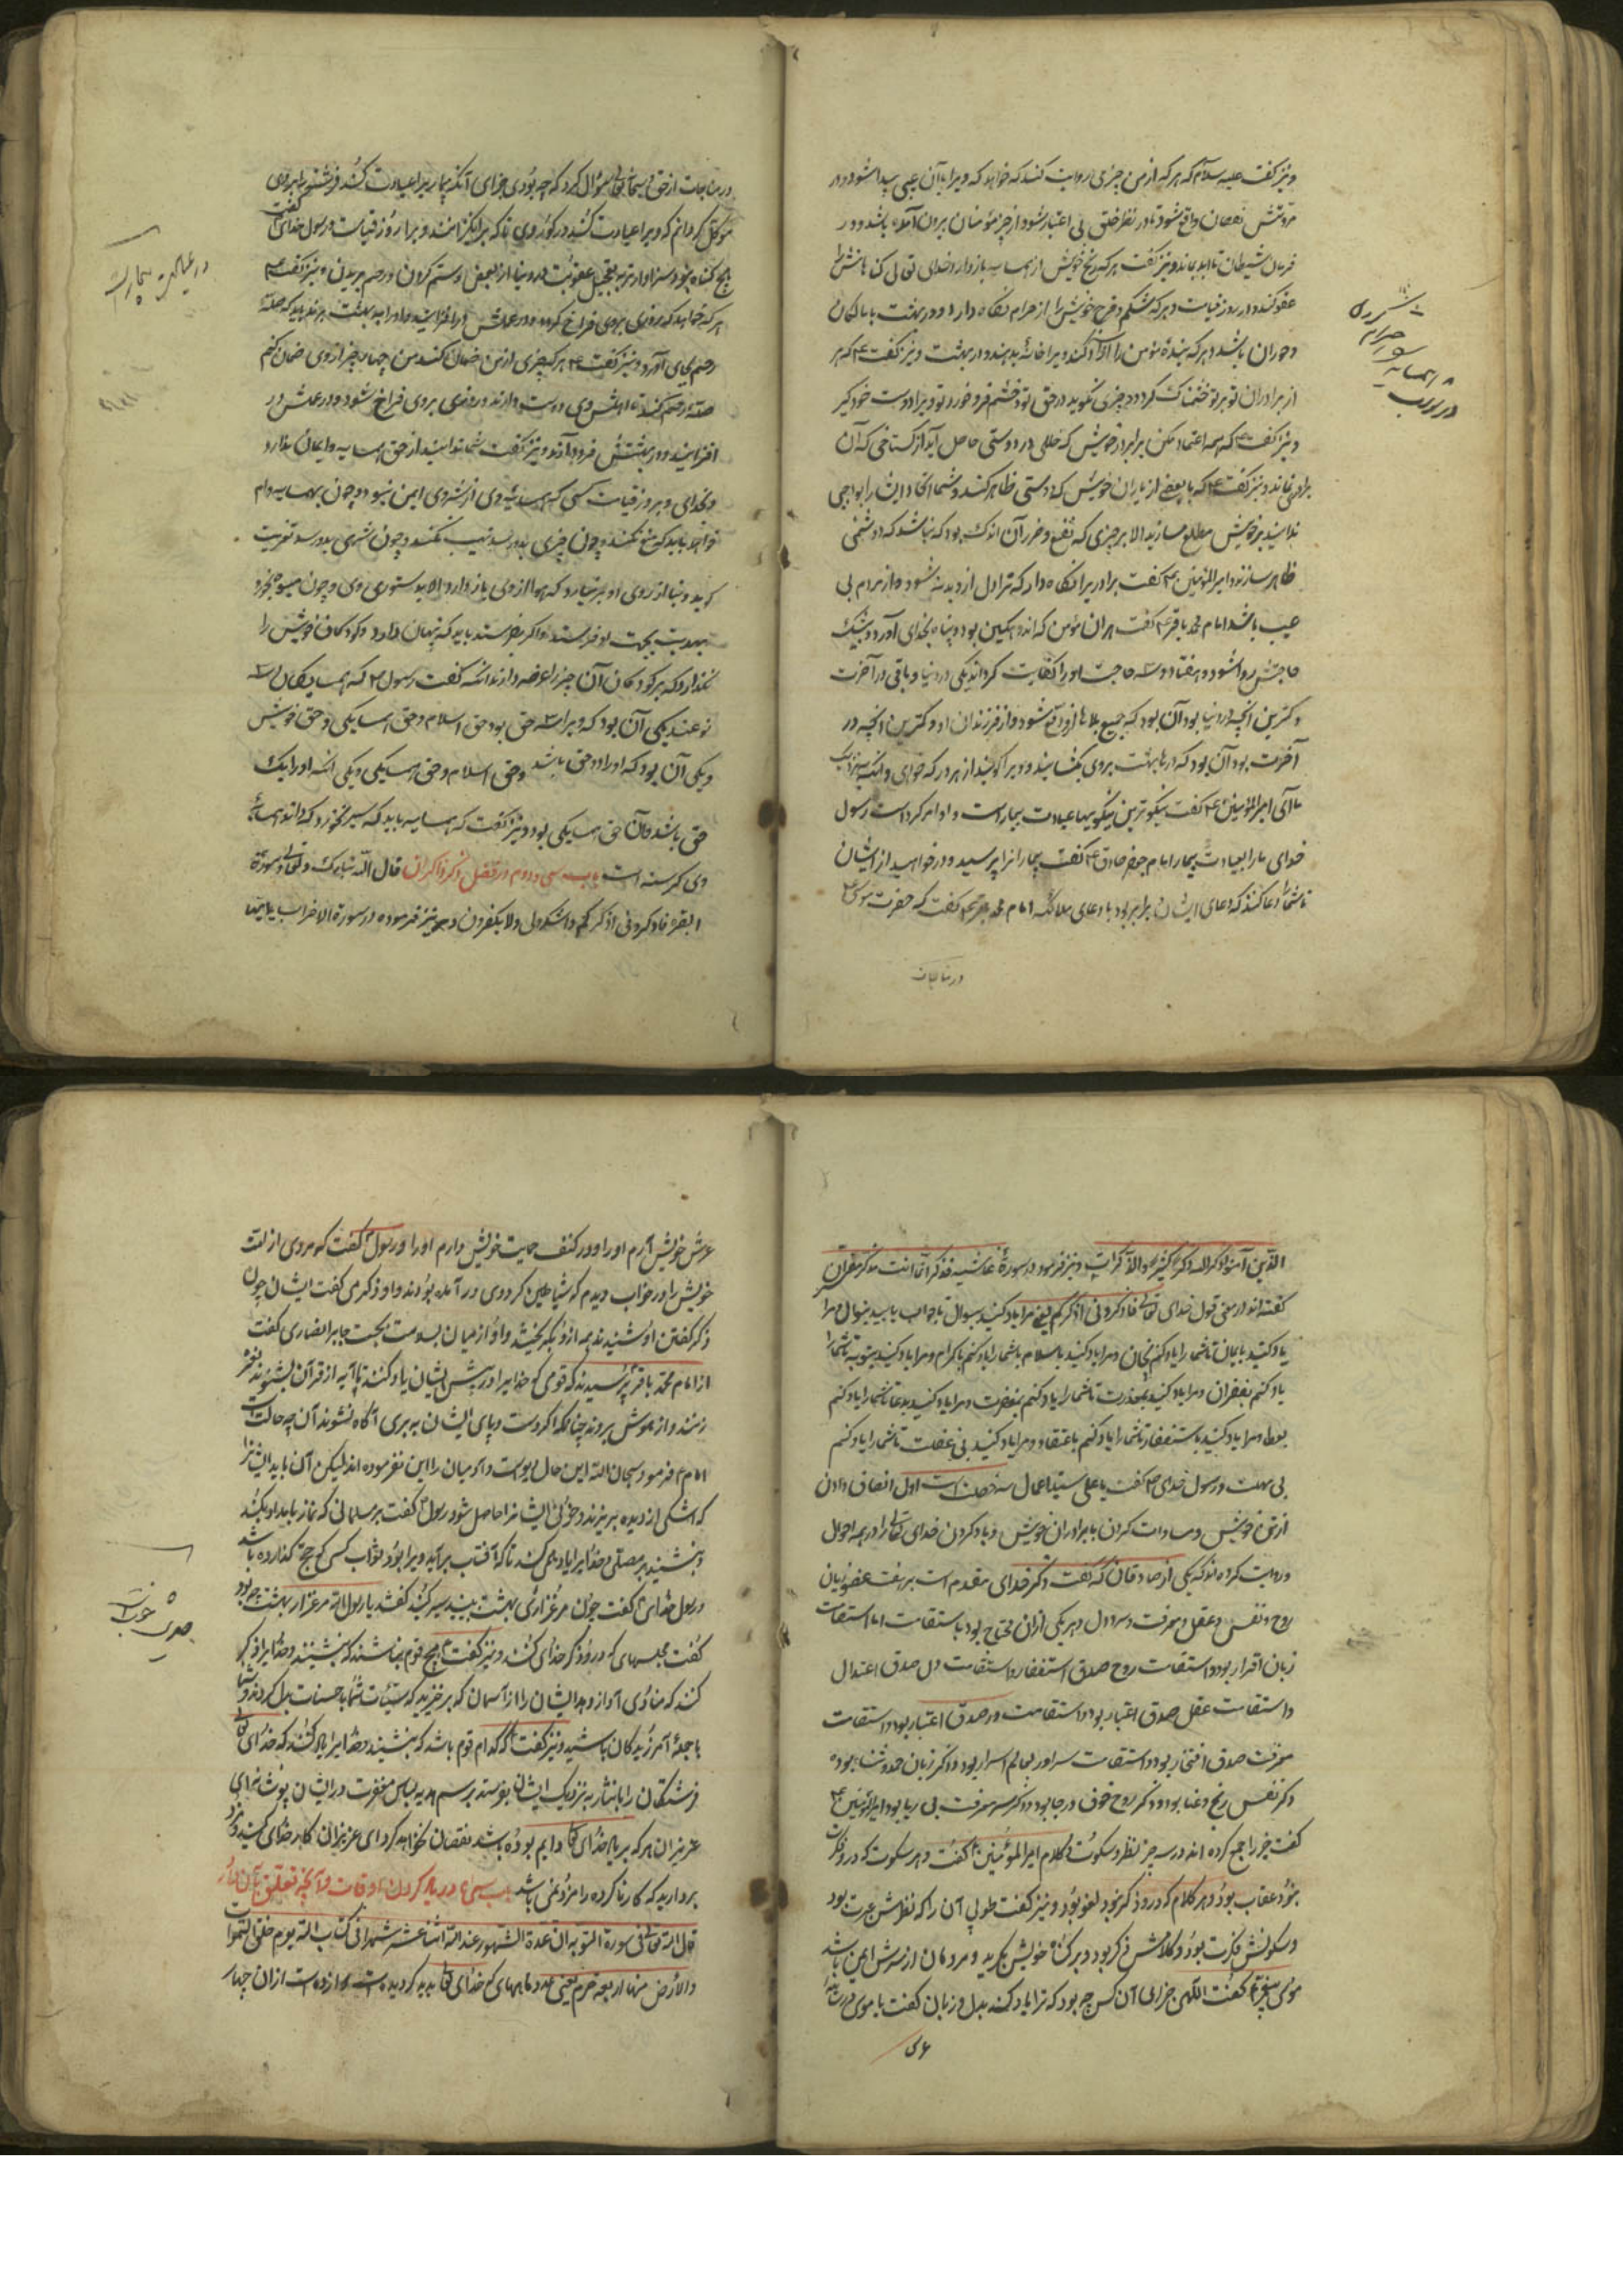 ونیز گفت علیه سلام که هر که از من چیزی روایت کند که خواهد که ویرا بآن عیبی پیدا شود و در
مروتش نقصان واقع شود تا در نظر خلق بی اعتبار شود از چیز مؤمنان برون آمده باشد و در
فرمان شیطان تا ابد بماند و نیز گفت هر که رنج خویش از همسایه باز دارد خدای تعالی گناهانش را
عفو کند در روز قیامت و هر که شکم و فرج خویش را از حرام نگاه دارد او در بهشت با
و حوران باشد و هر که بندهٔ مؤمن را آزاد کند ویرا خانهٔ بدهند در بهشت و نیز گفت ع که هر
از برادران تو بر تو خشمناک گردد و چیزی نگوید در حق تو و خشم فرو خورد تو ویرا دوست خود گیر
و نیز گفت ع که همه اعتماد مکن بر برادر خویش که خللی در دوستی حاصل آید از گستاخی که آن
نماند و نیز گفت ع که با بعضی از یاران خویش که دوستی ظاهر کنند و شما اتحاد ایشان را بواجبی
ندانید بر خویش مطلع مسازید الا بر چیزی که نفع و ضرر آن اندک بود که نباشد که دشمنی
ظاهر سازند و امیر المؤمنین ع گفت برادر را نگاه دار که ترا دل از دیدنه شود و از مردم بی
عیب باشد امام محمد باقر ع گفت هر آن مؤمن که اندوهگین بود و پناه بخدای آورد و بیشک
حاجتش روا شود و هفتاد و سه حاجت او را کفایت گرداند یکی در دنیا و باقی در آخرت
و کمترین آنچه در دنیا بود آن بود که جمیع بلاها از و دفع شود و از فرزندان او و کمترین آنچه در
آخرت بود آن بود که درهای بهشت بروی بگشایند و ویرا گویند از هر در که خواهی و آنکه بنزدیک
ما آی امیر المؤمنین ع گفت نیکوترین نیکوییها عیادت بیمار است و او امر کرد است رسول
خدای ما را بعیادت بیمار امام جعفر صادق ع گفت بیمارانرا پرسید و در خواهید از ایشان
تا شما را دعا کنند که دعای ایشان برابر بود با دعای ملائکه امام محمد باقر ع گفت که حضرت موسی ع
در مناجات
در مناجات از حق سبحانه تعالی سؤال کرد که چه بود جزای آنکه بیماریرا عیادت کند فرشته را بروی
موکل گردانم که ویرا عیادت کند در گور وی تا که برانگیزانند ویرا روز قیامت و رسول خدای ص گفت
هیچ گناه نبود سزاوارتر بتعجیل عقوبت در دنیا از بعضی و ستم کردن و رحم بریدن و نیز گفت ع
هر که خواهد که روزی بروی فراخ گردد و در عمرش درافزایند و او را به بهشت برند باید که صلهٔ
رحم بجای آورد و نیز گفت ع هر که چیزی از من ضمان کند من چهار چیز از وی ضمان کنم
صلهٔ رحم کند تا اهلش وی را دوست دارند و روزی بروی فراخ شود و در عمرش در
افزایند و در بهشتش فرود آرند و نیز گفت شما ترسید از حق همسایه و ایمان ندارد
بخدای و بروز قیامت کسی که همسایهٔ وی از شر وی ایمن نبود و چون بهمسایه وام
خواهد باید که منع نکند و چون چیزی بدو رسد تهنیت کند و چون شری بدو رسد تعزیت
گوید و بنا از روی او بر نیارد که هوا از وی باز دارد الا بدستوری وی و چون میوه بخرد
بهدیت بجهت او فرستد و اگر نفرستد باید که پنهان دارد و کودکان خویش را
نگذارد که بر کودکان آن چیز را عرضه دارند آنگه گفت رسول ص که همسایگان سه
نوعند یکی آن بود که ویرا سه حق بود حق اسلام و حق همسایگی و حق خویشی
و یکی آن بود که او را دو حق باشد و حق اسلام و حق همسایگی و یکی آنکه او را یک
حق باشد و آن حق همسایگی بود و نیز گفت که همسایه باید که سیر نخورد که داند همسایهٔ
وی گرسنه است باب سی و دوم در فضل ذکر ذاکران قال الله تبارک و تعالی فی سورة
البقره فاذکرونی اذکرکم واشکرولی ولا تکفرون و نیز فرموده در سورة الاحزاب یا ایها
الذین آمنوا ذکر الله ذکرا کثیرا والذاکرات و نیز فرمود در سورهٔ غاشیه فذکر انما انت مذکر مفسران
گفته‌اند در معنی قول خدای تعالی فاذکرونی اذکرکم یعنی مرا یاد کنید بسؤال تا جواب یابید بنوال مرا
یاد کنید بایمان تا شما را یاد کنم بجنان و مرا یاد کنید باسلام تا شما را یاد کنم باکرام و مرا یاد کنید بتوبه تا شما را
یاد کنم بغفران و مرا یاد کنید بمعذرت تا شما را یاد کنم بمغفرت و مرا یاد کنید بدعا تا شما را یاد کنم
بعطا و مرا یاد کنید باستغفار تا شما را یاد کنم باعتقاد و مرا یاد کنید بی غفلت تا شما را یاد کنم
بی مهلت و رسول خدای ص گفت یا علی سید اعمال سه خصلت است اول انصاف دادن
از تن خویش و مساوات کردن با برادران خویش و یاد کردن خدای تعالی را در همه احوال
و روایت کرده‌اند که یکی از صادقان که گفت ذکر خدای مقدم است بر هفت عضو زبان
روح و نفس و عقل و معرفت و سر و دل و هر یکی از آن محتاج بود باستقامت اما استقامت
زبان اقرار بود و استقامت روح صدق استغفار و استقامت دل صدق اعتدال
و استقامت عقل صدق اعتبار بود و استقامت در صدق اعتبار بود و استقامت
معرفت صدق افتخار بود و استقامت سر اور بعالم اسرار بود و ذکر زبان حمد و ثناء بود و
ذکر نفس رنج و عنا بود و ذکر روح خوف و رجا بود و ذکر سر معرفت بی ریا بود امیر المؤمنین ع
گفت خیر را جمع کرده‌اند در سه چیز نظر و سکوت و کلام امیر المؤمنین ع گفت و هر سکوت که در و فکرت
نبود عقاب بود و هر کلام که در و ذکر نبود لغو بود و نیز گفت طوبی آن را که نظرش عبرت بود
و سکوتش فکرت بود و کلامش ذکر بود و بر گناه خویش بگرید و مردمان از شرش ایمن باشد
موسی پیغمبر ع گفت الهی جزای آن کس چه بود که ترا یاد کند بدل و زبان گفت یا موسی در سایهٔ
عرش خویش آرم او را و در کنف حمایت خویش دارم او را و رسول ص گفت که مردی از امت
خویش را در خواب دیدم که شیاطین گرد وی در آمده بودند و او ذکر می گفت ایشان چون
ذکر گفتن او شنیدند همه از و بگریختند و او از میان بسلامت بجست جابر انصاری گفت
از امام محمد باقر ع پرسیدند که قومی که خدایرا در پیش ایشان یاد کنند یا آیه از قرآن بشنوند نعره
زنند و از هوش بروند چنانکه اگر دست و پای ایشان ببری آگاه نشوند آن چه حالت است
امام ع فرمود سبحان الله این حال دیوست و آدمیان را این نفرموده‌اند لیکن آن باید ایشانرا
که اشکی از دیده بریزند و خوفی ایشانرا حاصل شود رسول ص گفت هر مسلمانی که نماز بامداد بکند
و بنشیند بر مصلی و خدایرا یاد می کند تا که آفتاب برآید ویرا بود ثواب کسی که حج گذارده باشد
و رسول خدای ص گفت چون مرغزارهای بهشت ببینید سیر کنید گفتند یا رسول الله مرغزار بهشت چه بود
گفت مجلسهای که در و ذکر خدای کنند و نیز گفت ص هیچ قوم نباشند که بنشینند و خدایرا ذکر
کنند که منادی آواز دهد ایشان را از آسمان که برخیزید که سیئات شما با حسنات بدل کردند و شما
با جملهٔ آمرزیدگان باشید و نیز گفت که کدام قوم باشد که بنشینند و خدایرا یاد کنند که خدای تعالی
فرشتگان را با نثار بنزدیک ایشان بفرستد برسم هدیه لباس مغفرت در ایشان پوشانند ای
عزیزان هر که بر یاد خدای تعالی دایم بوده باشد نقصان نخواهد کرد ای عزیزان کار خدای کنید و مزد
بردارید که کار ناکرده را مزد نمی باشد باب سی در یاد کردن اوقات و آنچه تعلق بآن دارد
قال الله تعالی فی سورة التوبه ان عدة الشهور عند الله اثنا عشر شهرا فی کتاب الله یوم خلق السموات
والارض منها اربعه حرم یعنی عدد ماههای که خدای تعالی پدید کردیده است دوازده است از آن چهار